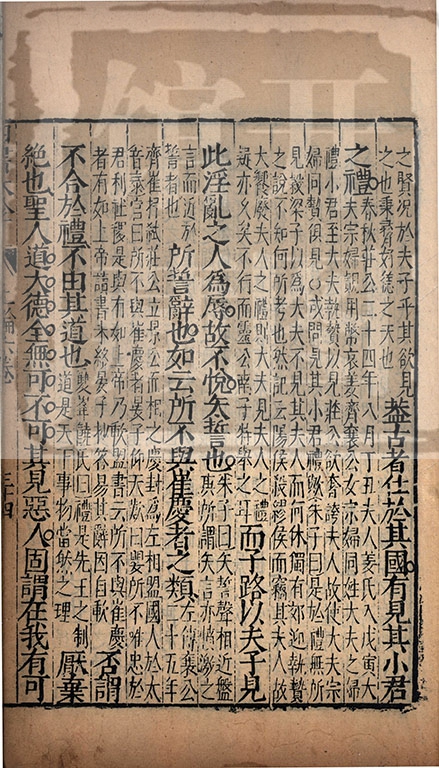 之賢況於夫子乎其欲見
之也秉彝好德之天也
蓋古者仕於其國有見其小君
之禮
春秋莊公二十四年八月丁丑夫人姜氏入戊寅大
夫宗婦覿用幣哀姜齊襄公女宗婦同姓大夫之婦
禮小君至大夫執贄以見莊公欲奢誇夫人故使大夫宗
婦同贄俱見○或問見其小君禮歟朱子曰是於禮無所
見穀梁子以為大夫不見其夫人而何休獨有郊迎執贄
之說不知何所考也然記云陽侯殺繆侯而竊其夫人故
大饗廢夫人之禮則大夫見夫人之禮
疑亦久矣不行而靈公南子特舉之耳
而子路以夫子見
此淫亂之人為辱故不悅矢誓也
朱子曰矢誓聲相近盤
庚所謂矢言亦憤激之
言而近於
誓者也
所誓辭也如云所不與崔慶者之類
左傳襄公
二十五年
齊崔杼弒莊公立景公而相之慶封為左相盟國人於太
宮曰所不與崔慶者晏子仰天歎曰嬰所不唯忠於
君利社稷是與有如上帝乃歃盟書云所不與崔慶
者有如上帝讀書未終晏子抄答易其辭因自歃
否謂
不合於禮不由其道也
雙峯饒氏曰禮是先王之制
道是天下事物當然之理
厭棄
絕也聖人道大德全無可不可其見惡人固謂在我有可